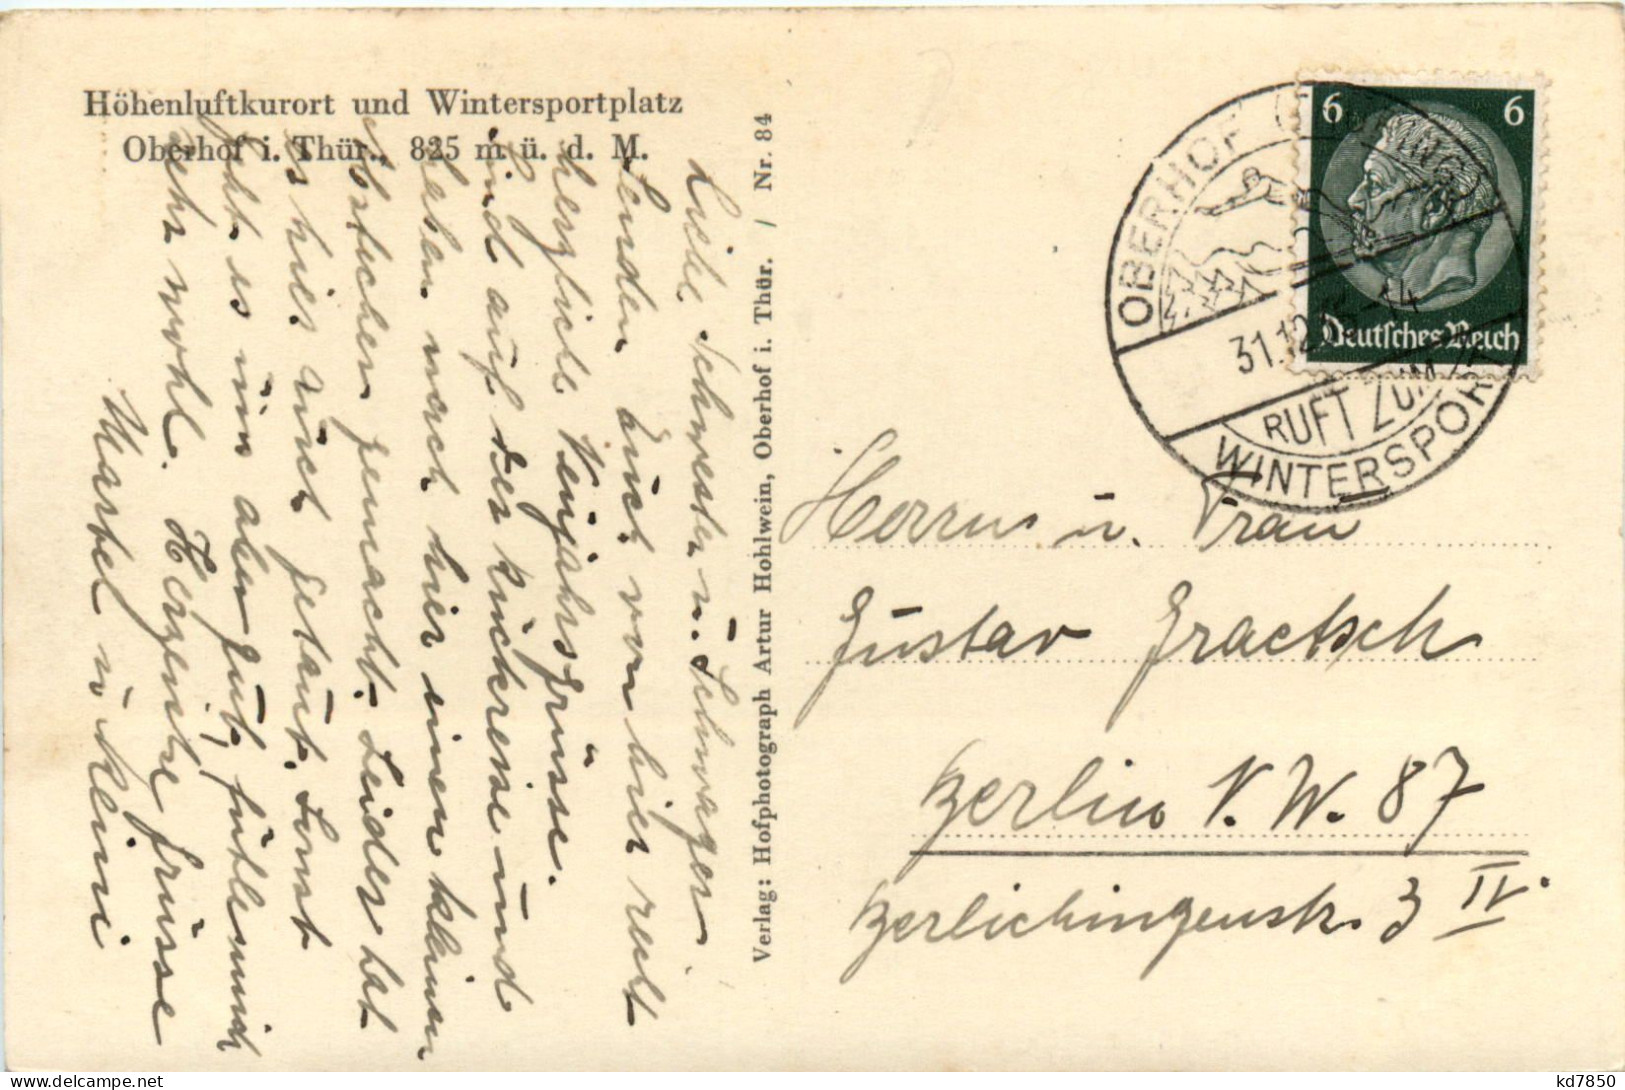 Höhenluftkurort und Wintersportplatz
Oberhof i. Thür., 825 m ü. d. M.
Liebe Schwester u. Schwager
Senden Euch von hier recht
herzliche Neujahrsgrüsse.
Sind auf der Rückreise und
haben noch hier einen kleinen
Abstecher gemacht. Leider hat
es hier auch getaut. Sonst
geht es uns aber gut, fühlen uns
sehr wohl. Herzliche Grüsse
Martel u.
Verlag: Hofphotograph Artur Hohlwein, Oberhof i. Thür. / Nr. 84
OBERHOF (THÜRING)
31.12. -14
RUFT ZUM
WINTERSPORT
6 6
Deutsches Reich
Herrn u. Frau
Gustav Graetsch
Berlin N.W. 87
Berlichingenstr. 3 IV.
kd7850